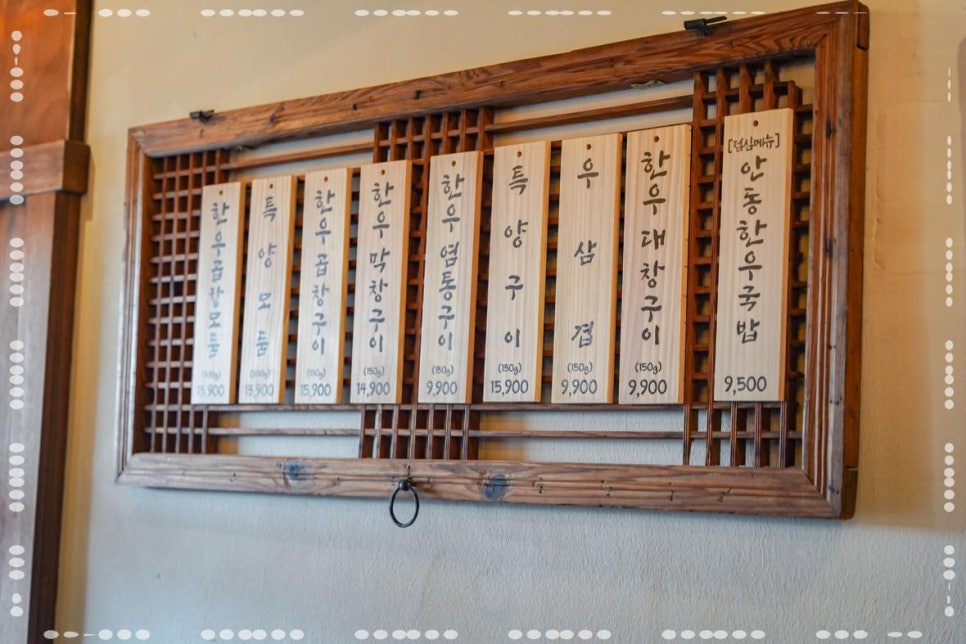 한우곱창모둠
특양모둠
한우곱창구이
(150g)
15,900
한우막창구이
(150g)
14,900
한우염통구이
(150g)
9,900
특양구이
(150g)
15,900
우삼겹
(150g)
9,900
한우대창구이
(150g)
9,900
[점심메뉴]
안동한우국밥
9,500